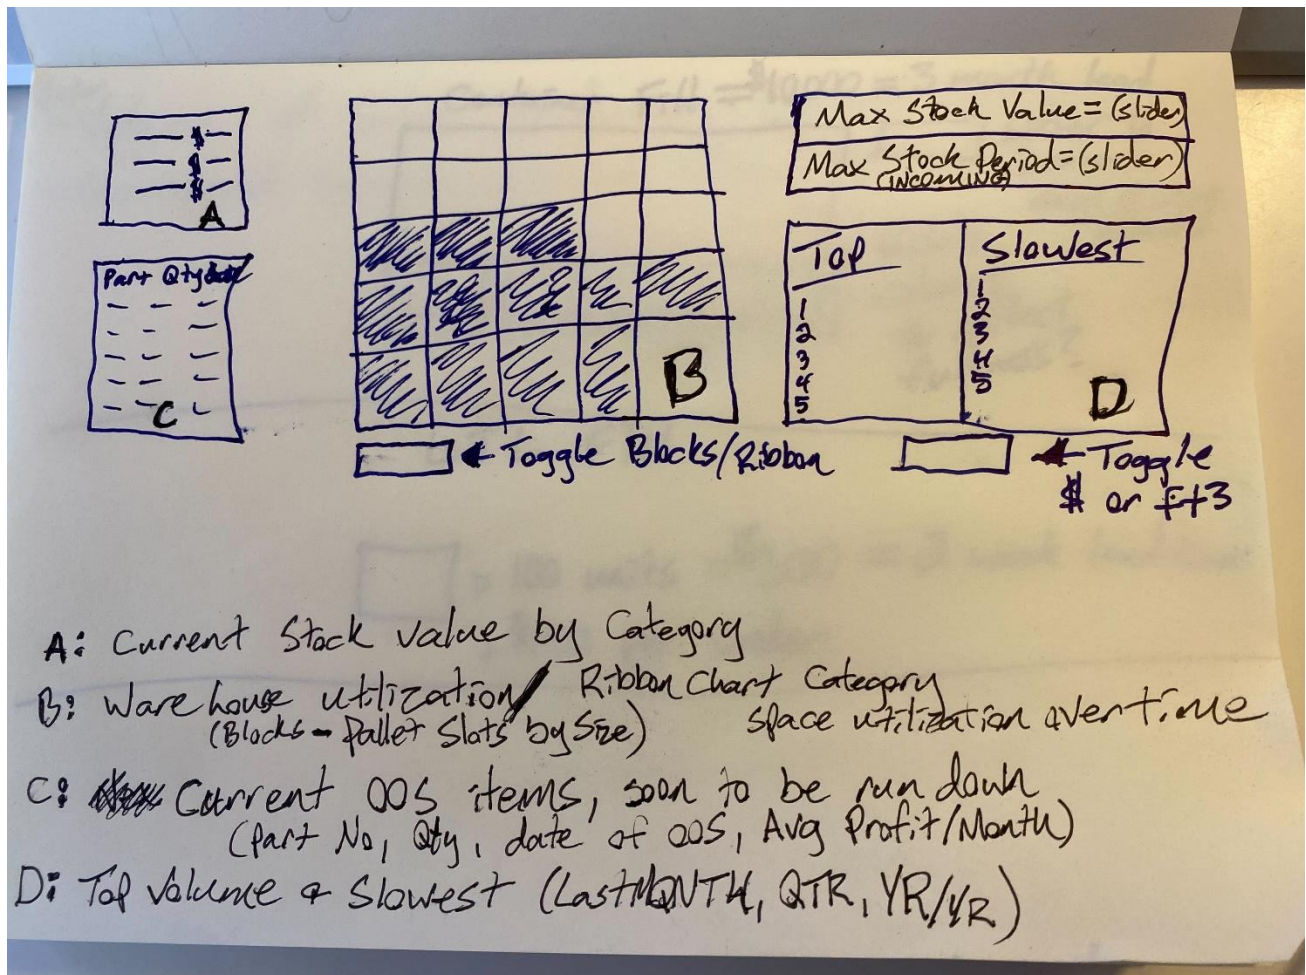 $
$
$
A
Part Qty date
C
B
Toggle Blocks/Ribbon
Max Stock Value = (slider)
Max Stock Period = (slider)
(INCOMING)
Top
1
2
3
4
5
Slowest
1
2
3
4
5
D
Toggle
$ or ft3
A: Current Stock value by Category
B: Warehouse utilization / Ribbon Chart Category
(Blocks - Pallet Slots by Size) space utilization over time
C: Current OOS items, soon to be run down
(Part No, Qty, date of OOS, Avg Profit/Month)
D: Top Volume & Slowest (Last MONTH, QTR, YR/YR)